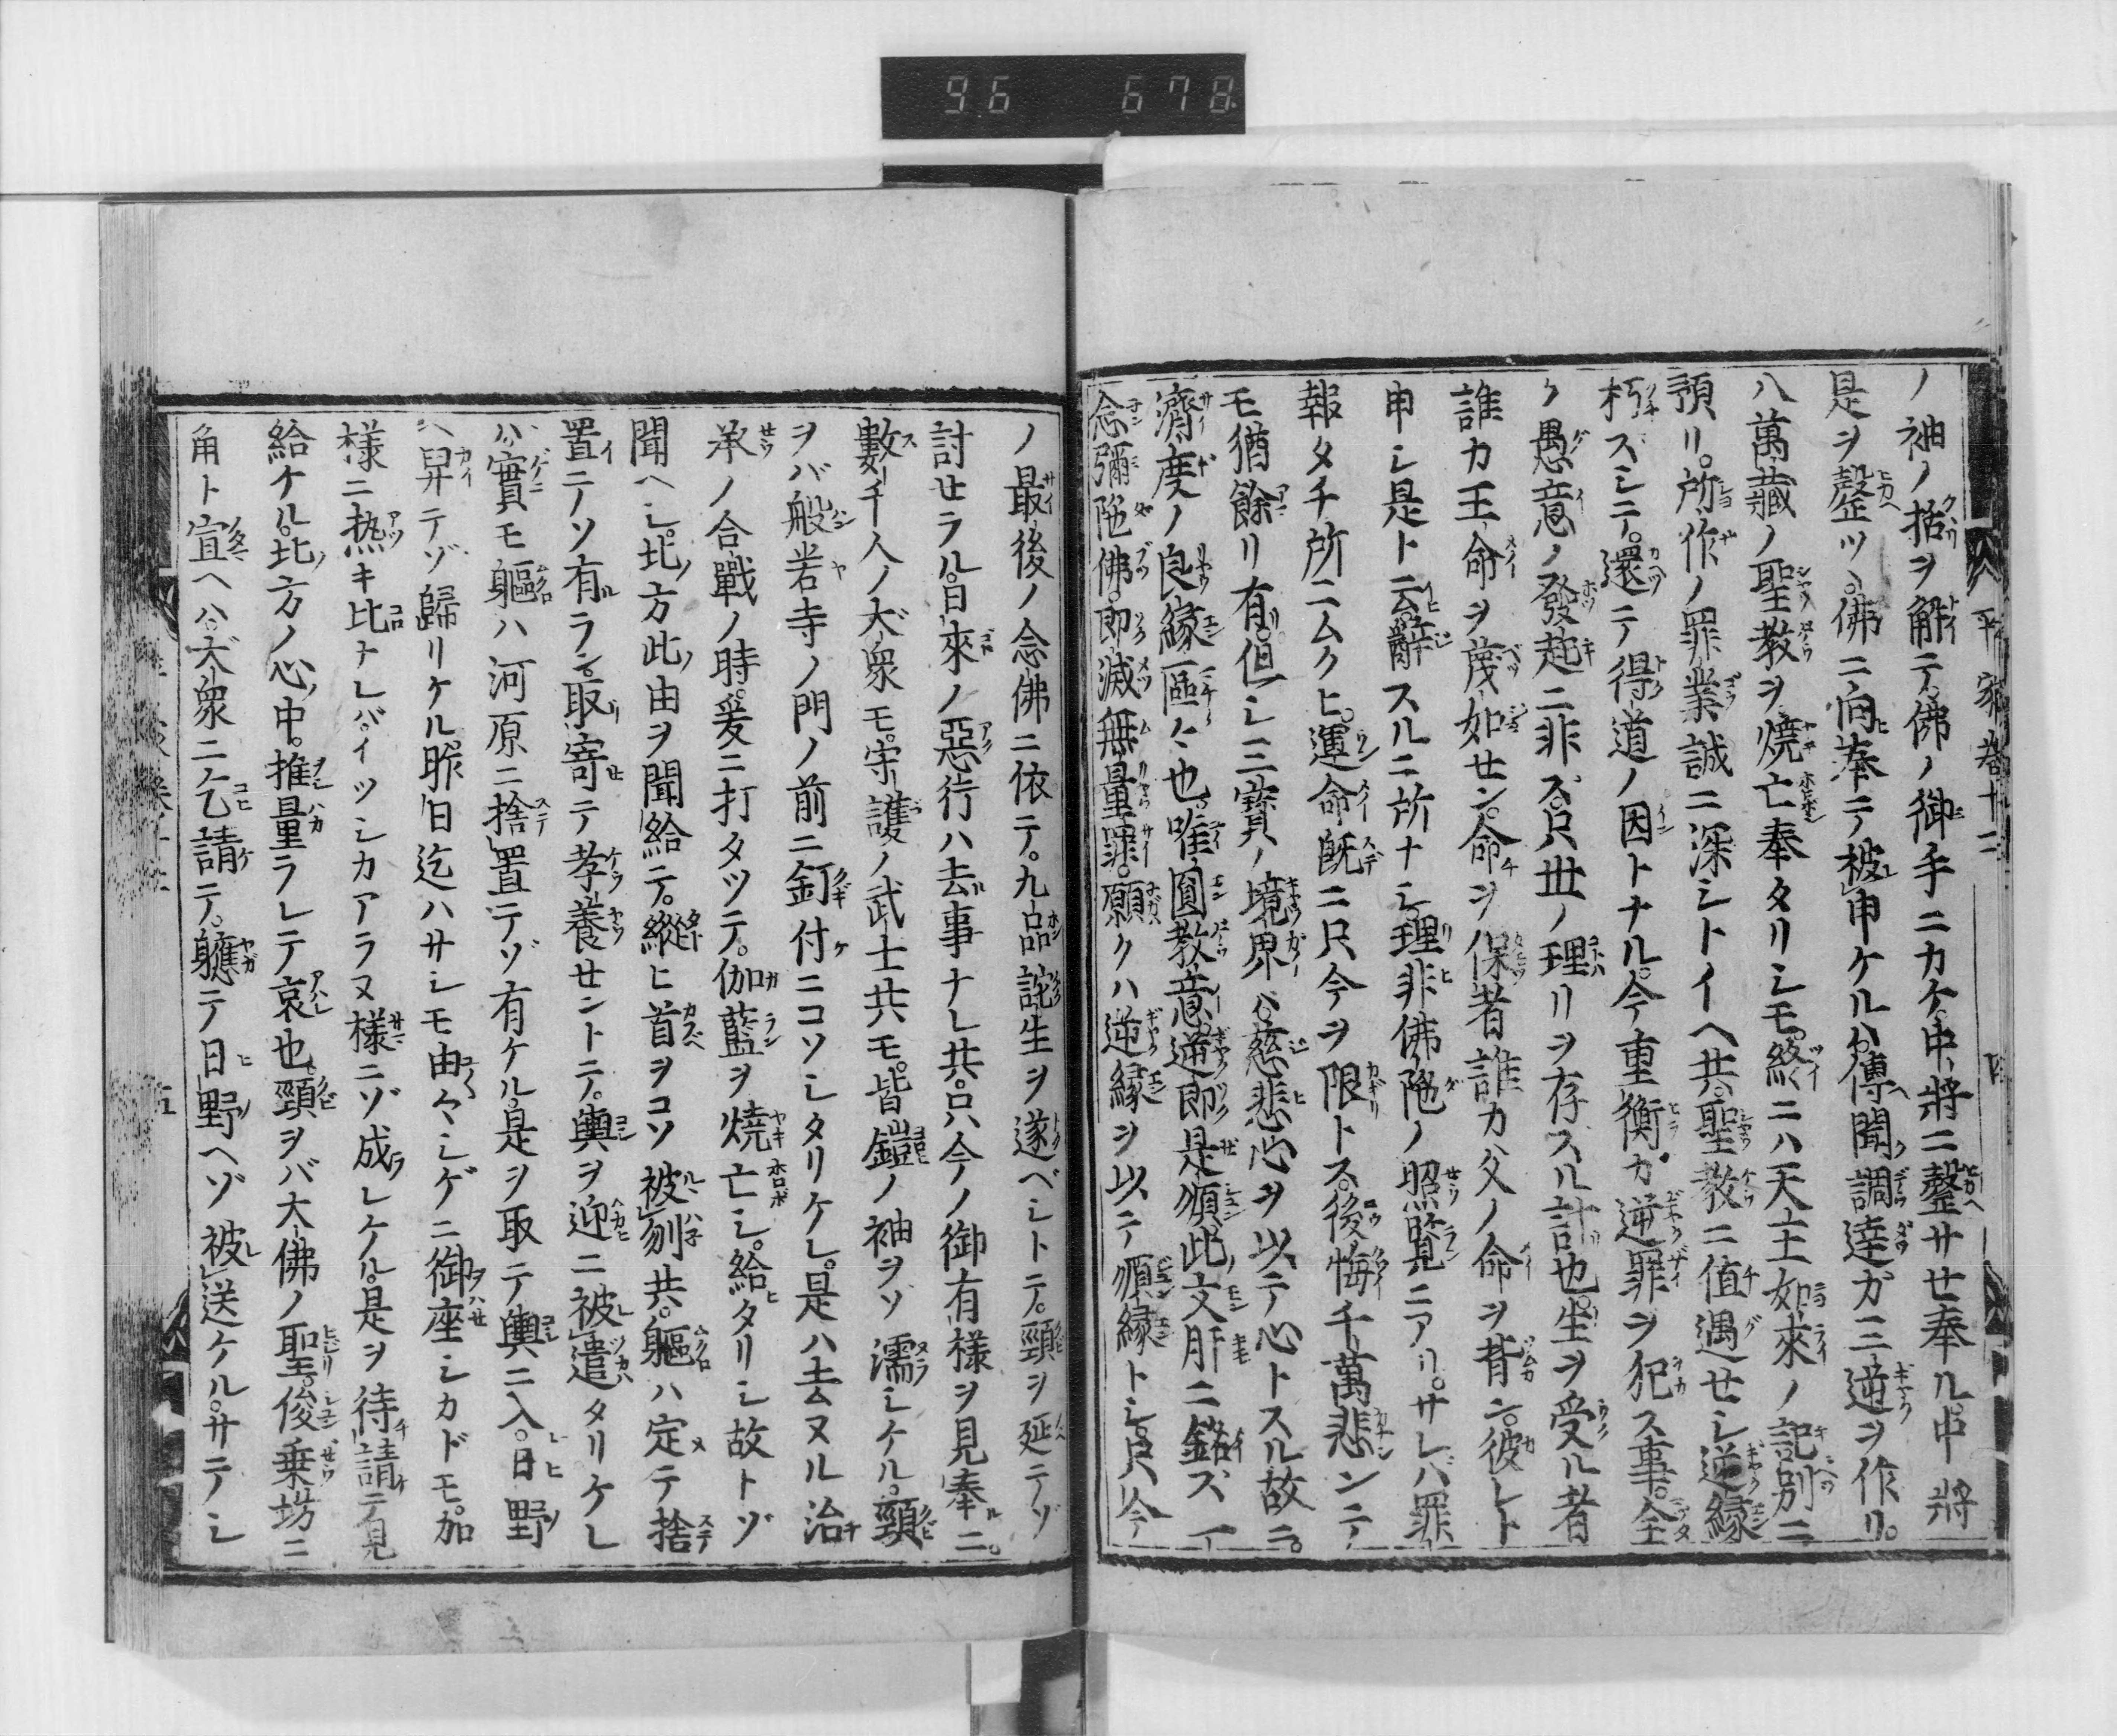 96 678
平家巻十二
ノ袖ノ括ヲ解テ佛ノ御手ニカケ中將ニ鏧サセ奉ル中將
是ヲ鏧ツヽ佛ニ向奉テ被申ケルハ傳聞調達ガ三逆ヲ作リ
八萬藏ノ聖教ヲ燒亡奉タリシモ終ニハ天王如來ノ記別ニ
預リ所作ノ罪業誠ニ深シトイヘ共聖教ニ值遇セシ逆縁
朽ズシテ還テ得道ノ因トナル今重衡カ逆罪ヲ犯ス事全
ク愚意ノ發起ニ非ス只世ノ理リヲ存スル計也生ヲ受ル者
誰カ王命ヲ蔑如セン命ヲ保者誰カ父ノ命ヲ背ン彼レト
申シ是ト云辭スルニ所ナシ理非佛陀ノ照覧ニアリサレバ罪
報タチ所ニムクヒ運命既ニ只今ヲ限トス後悔千萬悲ンテ
モ猶餘リ有但シ三寶ノ境界ハ慈悲心ヲ以テ心トスル故ニ
濟度ノ良縁區々也唯圓教意逆即是順此文肝ニ銘ズ一
念彌陀佛即滅無量罪願クハ逆縁ヲ以テ順縁トシ只今
ノ最後ノ念佛ニ依テ九品詫生ヲ遂ベシトテ頸ヲ延テゾ
討セラル日來ノ惡行ハ去事ナレ共只今ノ御有様ヲ見奉ニ
數千人ノ大衆モ守護ノ武士共モ皆鎧ノ袖ヲソ濡シケル頸
ヲバ般若寺ノ門ノ前ニ釘付ニコソシタリケレ是ハ去ヌル治
承ノ合戰ノ時爰ニ打タツテ伽藍ヲ燒亡シ給タリシ故トゾ
聞ヘシ北方此由ヲ聞給テ縱ヒ首ヲコソ被刎共軀ハ定テ捨
置テソ有ラン取寄テ孝養セントテ輿ヲ迎ニ被遣タリケレ
ハ實モ軀ハ河原ニ捨置テゾ有ケル是ヲ取テ輿ニ入日野
ヘ舁テゾ歸リケル昨日迄ハサシモ由々シゲニ御座シカドモ加
樣ニ热キ比ナレバイツシカアラヌ樣ニゾ成レケル是ヲ待請テ見
給ケル北方ノ心中推量ラレテ哀也頸ヲバ大佛ノ聖俊乗坊ニ
角ト宣ヘハ大衆ニ乞請テ軈テ日野ヘゾ被送ケルサテシ
五